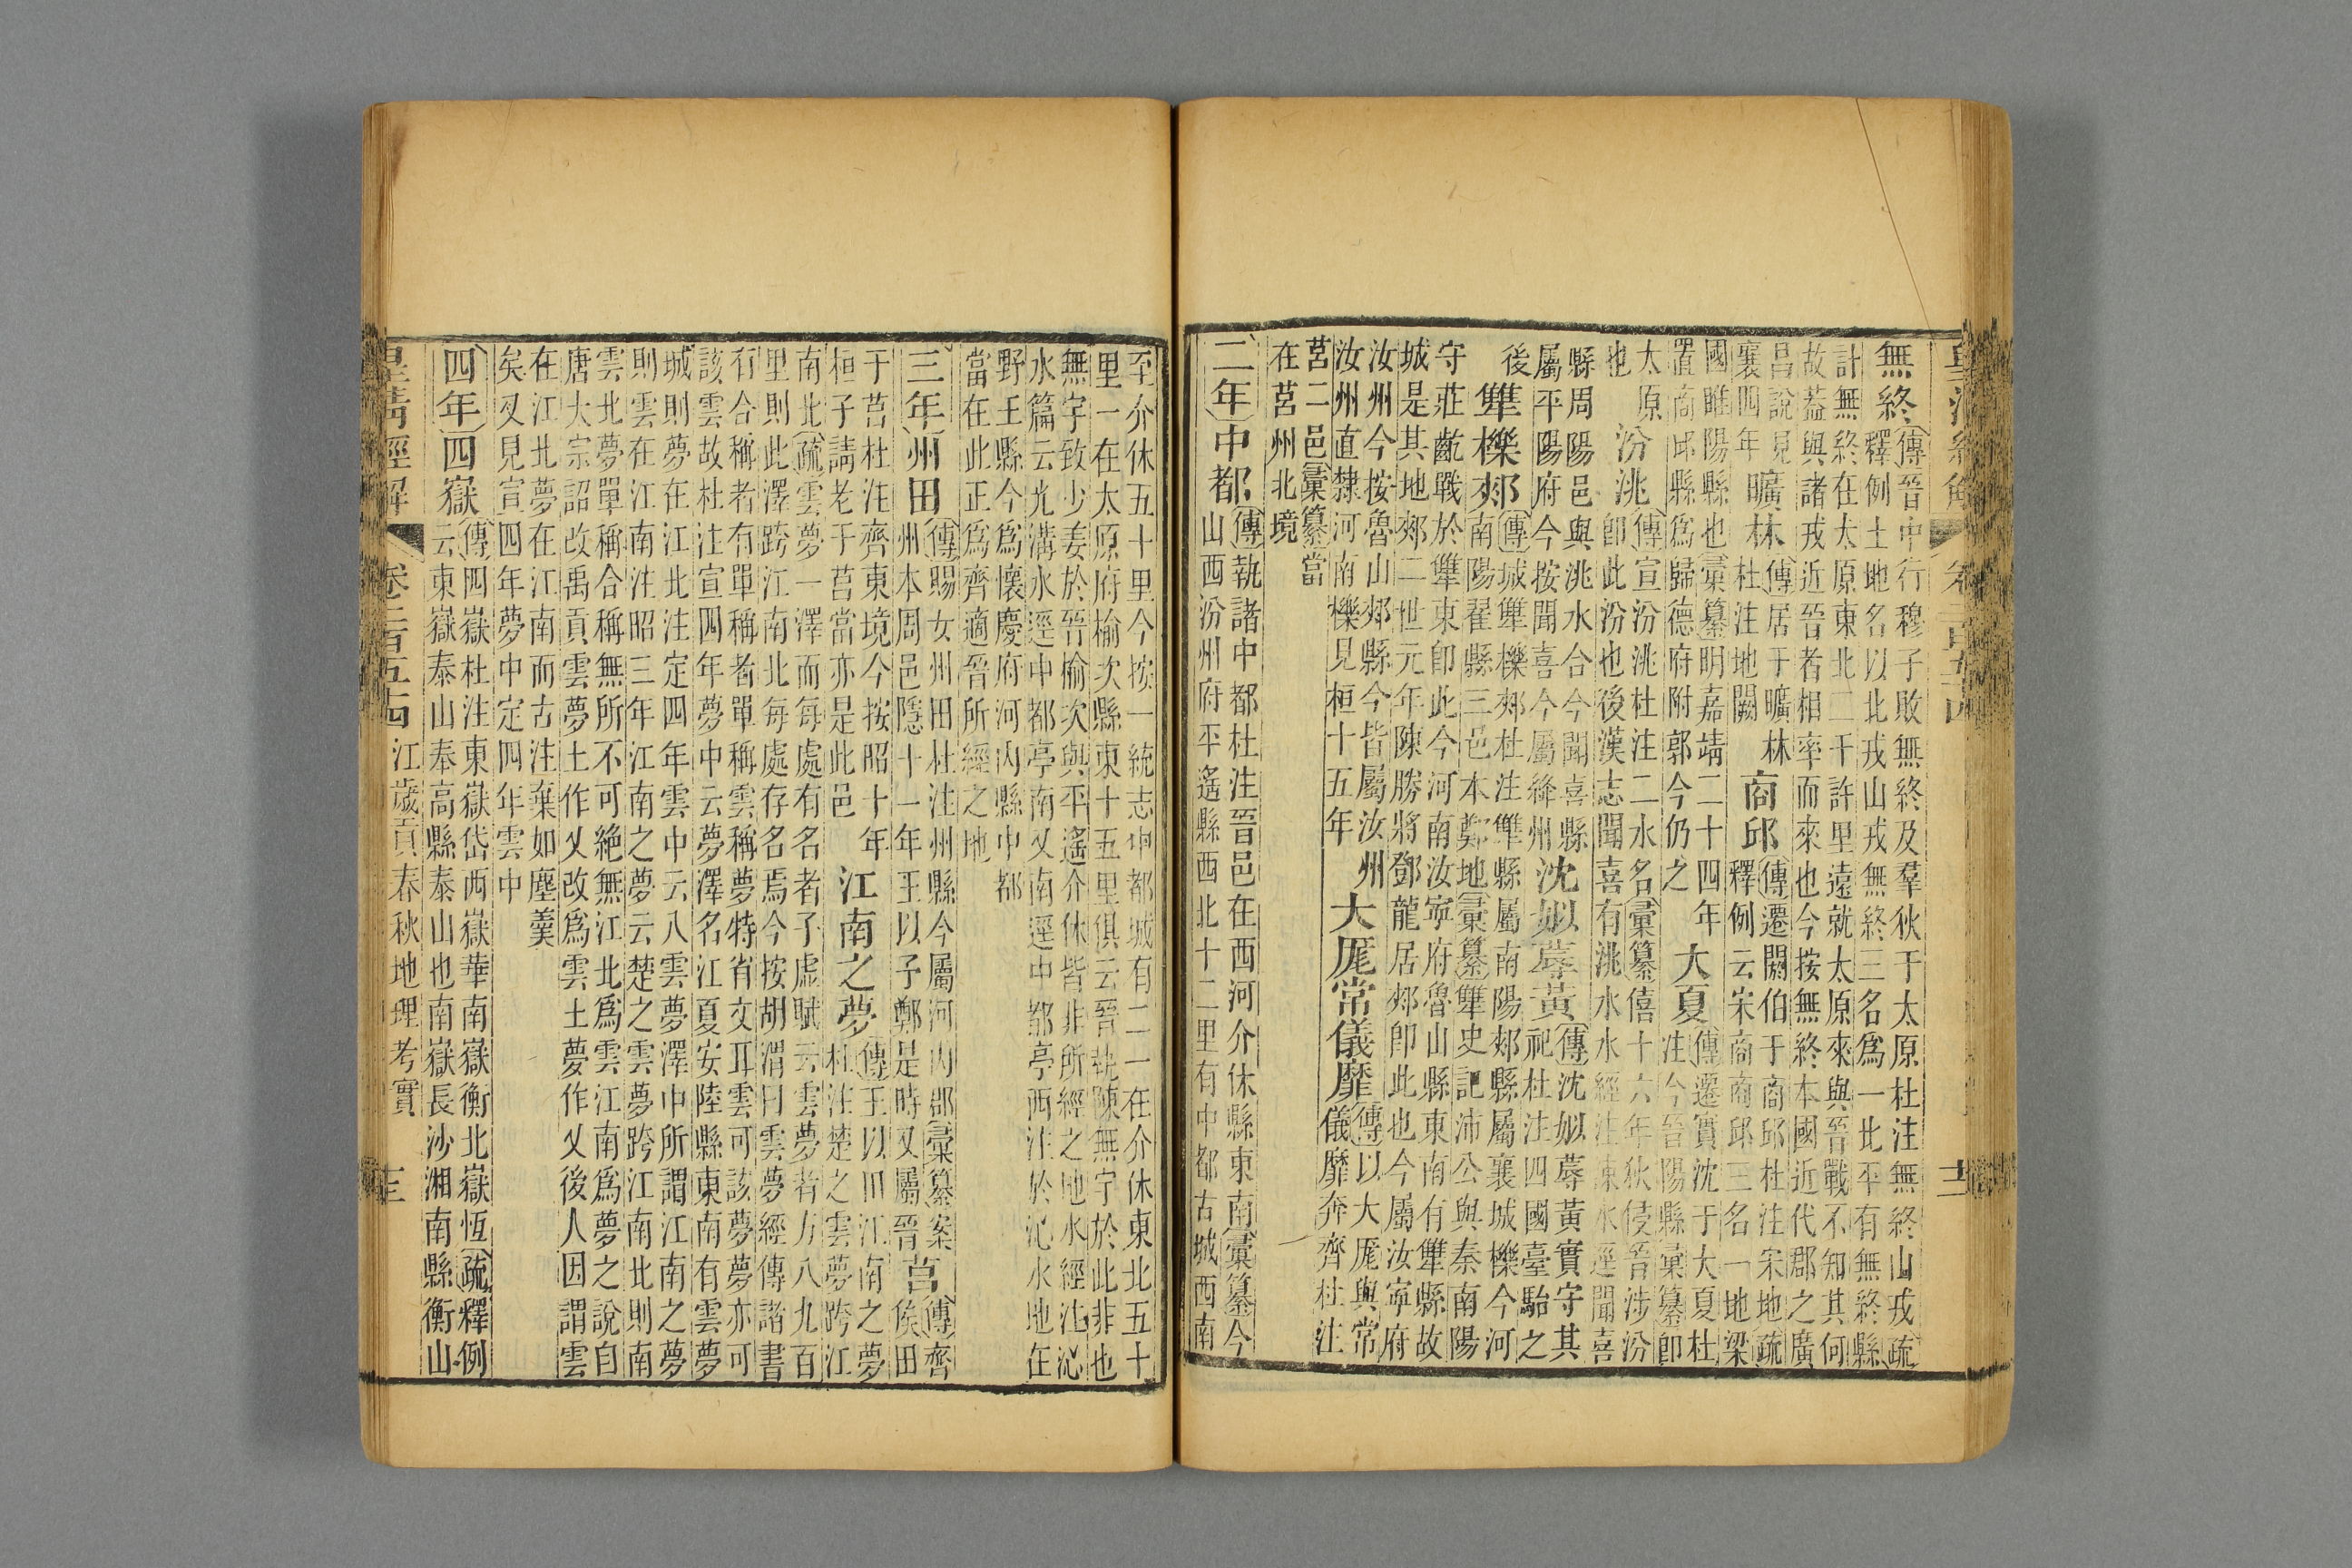 皇清經解
卷二百五十四
十二
無終傳晉中行穆子敗無終及羣狄于太原杜注無終山戎疏
釋例土地名以北戎山戎無終三名爲一北平有無終縣
計無終在太原東北二千許里遠就太原來與晉戰不知其何
故蓋與諸戎近晉者相率而來也今按無終本國近代郡之廣
昌說見
襄四年
曠林
傳居于曠林
杜注地闕
商邱
傳遷閼伯于商邱杜注宋地疏
釋例云宋商商邱三名一地梁
國睢陽縣也彙纂明嘉靖二十四年
置商邱縣爲歸德府附郭今仍之
大夏
傳遷實沈于大夏杜
注今晉陽縣彙纂卽
太原
也
汾洮
傳宣汾洮杜注二水名彙纂僖十六年狄侵晉涉汾
卽此汾也後漢志聞喜有洮水水經注涑水逕聞喜
縣周陽邑與洮水合今聞喜縣
屬平陽府今按聞喜今屬絳州
沈姒蓐黃
傳沈姒蓐黃實守其
祀杜注四國臺駘之
後
犨櫟郟
傳城犨櫟郟杜注犨縣屬南陽郟縣屬襄城櫟今河
南陽翟縣三邑本鄭地彙纂犨史記沛公與秦南陽
守莊齕戰於犨東卽此今河南汝寧府魯山縣東南有犨縣故
城是其地郟二世元年陳勝將鄧龍居郟卽此也今屬汝寧府
汝州今按魯山郟縣今皆屬汝州
汝州直隸河南櫟見桓十五年
大厖常儀靡
傳以大厖與常
儀靡奔齊杜注
莒二邑彙纂當
在莒州北境
二年
中都
傳執諸中都杜注晉邑在西河介休縣東南彙纂今
山西汾州府平遙縣西北十二里有中都古城西南
至介休五十里今按一統志中都城有二一在介休東北五十
里一在太原府榆次縣東十五里俱云晉執陳無宇於此非也
無宇致少姜於晉榆次與平遙介休皆非所經之地水經注沁
水篇云光溝水逕中都亭南又南逕中都亭西注於沁水地在
野王縣今爲懷慶府河內縣中都
當在此正爲齊適晉所經之地
三年
州田
傳賜女州田杜注州縣今屬河內郡彙纂案
州本周邑隱十一年王以予鄭是時又屬晉
莒
傳齊
侯田
于莒杜注齊東境今按昭十年
桓子請老于莒當亦是此邑
江南之夢
傳王以田江南之夢
杜注楚之雲夢跨江
南北疏雲夢一澤而每處有名者子虛賦云雲夢者方八九百
里則此澤跨江南北每處存名焉今按胡渭曰雲夢經傳諸書
有合稱者有單稱者單稱雲稱夢特省文耳雲可該夢夢亦可
該雲故杜注宣四年夢中云夢澤名江夏安陸縣東南有雲夢
城則夢在江北注定四年雲中云八雲夢澤中所謂江南之夢
則雲在江南注昭三年江南之夢云楚之雲夢跨江南北則南
雲北夢單稱合稱無所不可絕無江北爲雲江南爲夢之說自
唐太宗詔改禹貢雲夢土作乂改爲雲土夢作乂後人因謂雲
在江北夢在江南而古注棄如塵羹
矣又見宣四年夢中定四年雲中
四年
四嶽
傳四嶽杜注東嶽岱西嶽華南嶽衡北嶽恆疏釋例
云東嶽泰山奉高縣泰山也南嶽長沙湘南縣衡山
皇清經解
卷二百五十四
江歲貢春秋地理考實
十三